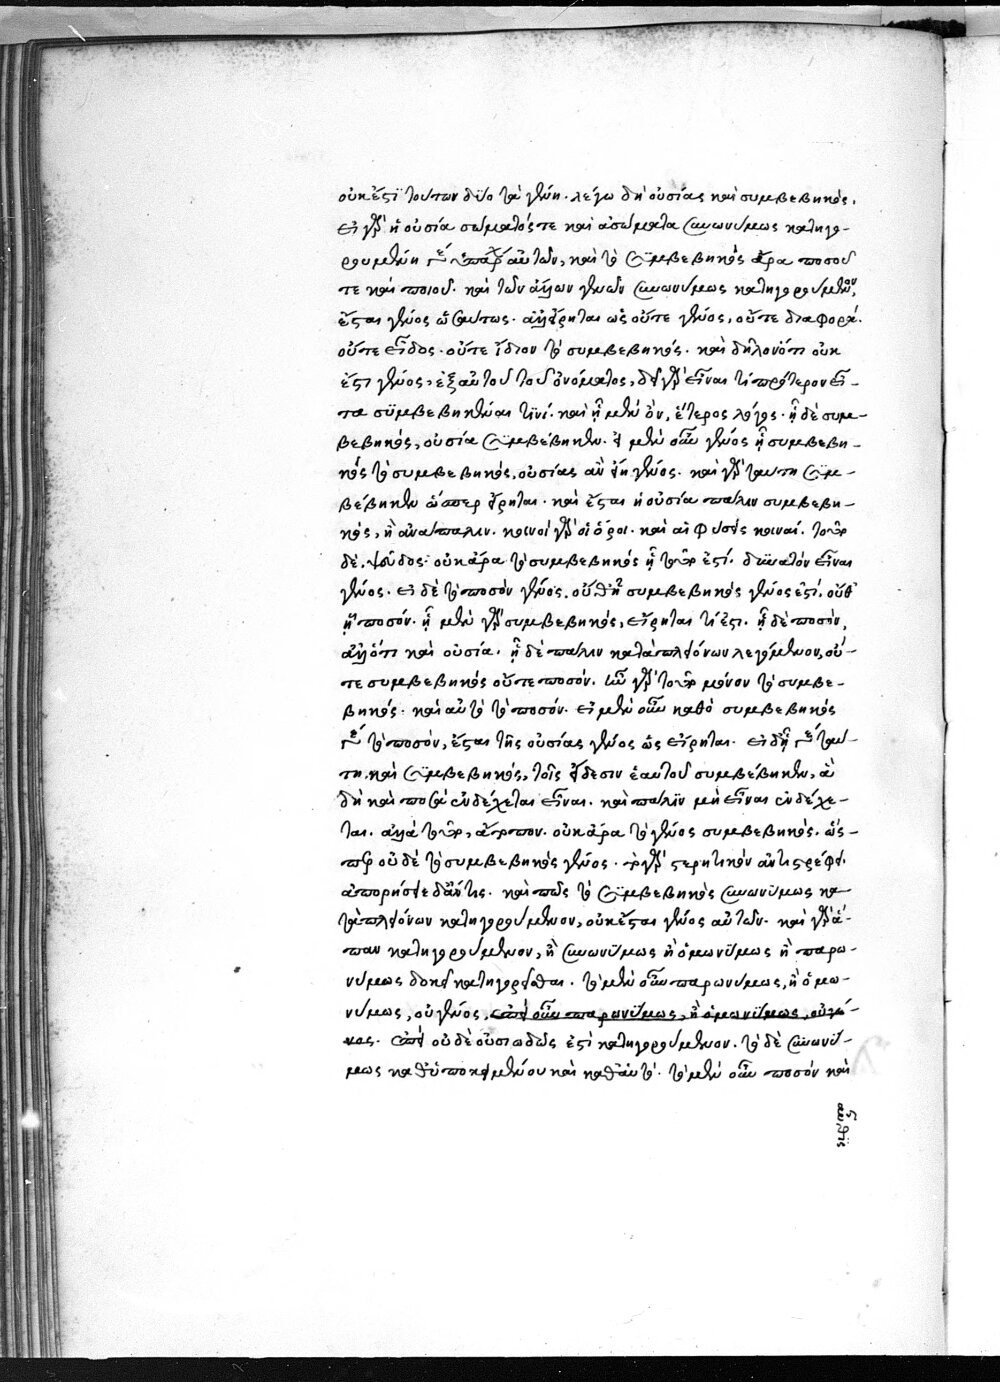 οὐκ ἔστι τούτων δύο τὰ γένη. λέγω δὴ οὐσίας καὶ συμβεβηκός.
εἰ γὰρ ἡ οὐσία σώματός τε καὶ ἀσώματα συνωνύμως κατηγο-
ρουμένη αὐτῶν, καὶ τὸ συμβεβηκὸς ἄρα ποσοῦ
τε καὶ ποιοῦ. καὶ τῶν ἄλλων γενῶν συνωνύμως κατηγορούμενον,
ἔσται γένος ὡσαύτως. ἀλλ' εἴρηται ὡς οὔτε γένος, οὔτε διαφορά.
οὔτε εἶδος. οὔτε ἴδιον τὸ συμβεβηκός. καὶ δηλονότι οὐκ
ἔστι γένος, ἐξ αὐτοῦ τοῦ ὀνόματος, δεῖ γὰρ εἶναί τι πρότερον εἶ-
τα συμβεβηκέναι τινί. καὶ ᾗ μὲν ὄν, ἕτερος λόγος. ᾗ δὲ συμ-
βεβηκός, οὐσία συμβέβηκεν. εἰ μὲν οὖν γένος ᾗ συμβεβη-
κός τὸ συμβεβηκός, οὐσίας ἂν εἴη γένος. καὶ γὰρ ταύτῃ συμ-
βέβηκεν ὥσπερ εἴρηται. καὶ ἔσται ἡ οὐσία πάλιν συμβεβη-
κός, ἢ ἀνάπαλιν. κοινοὶ γὰρ οἱ ὅροι. καὶ αἱ φύσεις κοιναί. τοῦτο
δὲ, ψεῦδος. οὐκ ἄρα τὸ συμβεβηκός ᾗ τοῦτο ἐστί. δυνατὸν εἶναι
γένος. εἰ δὲ τὸ ποσὸν γένος, οὐχ ᾗ συμβεβηκός γένος ἐστί, οὐδ'
ᾗ ποσόν. ᾗ μὲν γὰρ συμβεβηκός, εἴρηται τί ἐστι. ᾗ δὲ ποσόν,
ἀλλ' ὅτι καὶ οὐσία. ᾗ δὲ πάλιν κατὰ πλειόνων λεγόμενον, οὔ-
τε συμβεβηκός οὔτε ποσόν. γὰρ τοῦτο μόνον τὸ συμβε-
βηκός. καὶ αὐτὸ τὸ ποσόν. εἰ μὲν οὖν καθὸ συμβεβηκός
τὸ ποσόν, ἔσται τῆς οὐσίας γένος ὡς εἴρηται. εἰ δὴ ταύ-
τῃ καὶ συμβεβηκός, τοῖς εἴδεσιν ἑαυτοῦ συμβέβηκεν, ἃ
δὴ καὶ ποσὰ ἐνδέχεται εἶναι. καὶ πάλιν μὴ εἶναι ἐνδέχε-
ται. ἀλλὰ τοῦτο, ἄτοπον. οὐκ ἄρα τὸ γένος συμβεβηκός. ὥσ-
περ οὐδὲ τὸ συμβεβηκός γένος. γὰρ στερητικὸν ἀντιστρέφει.
ἀπορήσειε δ' ἄν τις. καὶ πῶς τὸ συμβεβηκός συνωνύμως κα-
τὰ πλειόνων κατηγορούμενον, οὐκ ἔσται γένος αὐτῶν. καὶ γὰρ ἅ-
παν κατηγορούμενον, ἢ συνωνύμως ἢ ὁμωνύμως ἢ παρω-
νύμως δοκεῖ κατηγορεῖσθαι. τὸ μὲν οὖν παρωνύμως, ἢ ὁμω-
νύμως, οὐ γένος, ἐπεὶ οὖν παρωνύμως, ἢ ὁμωνύμως, οὐ γέ-
νος. ἐπεὶ οὐδὲ οὐσιωδῶς ἐστὶ κατηγορούμενον. τὸ δὲ συνωνύ-
μως καθ' ὑποκειμένου καὶ καθ' αὑτό. τὸ μὲν οὖν ποσὸν καὶ